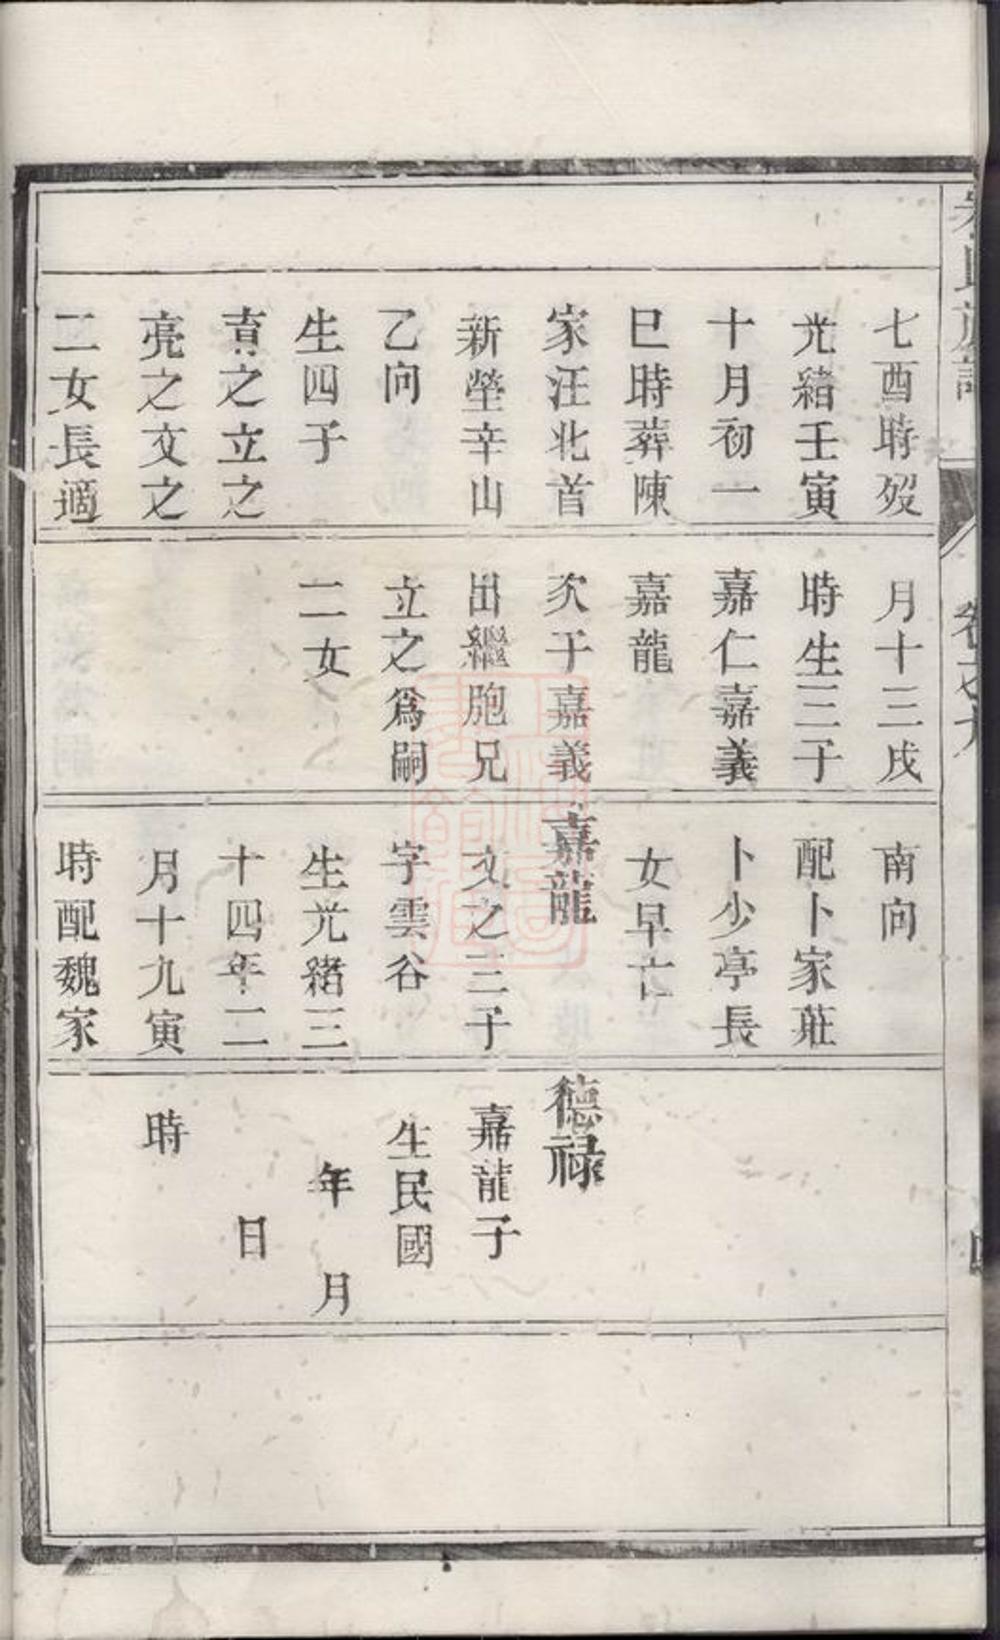 七酉時歿
光緒壬寅
十月初一
巳時葬陳
家汪北首
新塋辛山
乙向
生四子
直之立之
亮之文之
二女長適
月十三戌
時生三子
嘉仁嘉義
嘉龍
次子嘉義
出繼胞兄
立之爲嗣
二女
南向
配卜家莊
卜少亭長
女早亡
嘉龍
文之三子
字雲谷
生光緒三
十四年二
月十九寅
時配魏家
德祿
嘉龍子
生民國
年 月
日
時